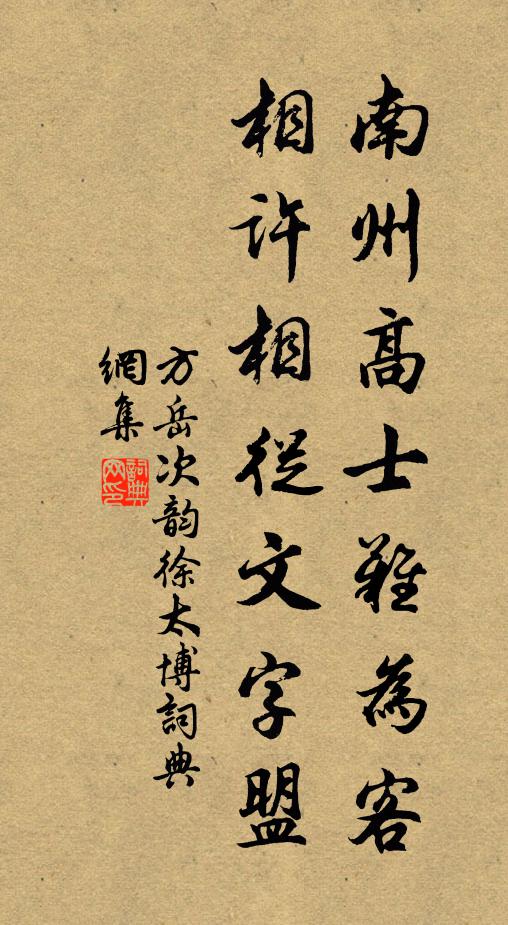 南州高士難為客
相許相從文字盟
方岳次韵徐太博詞典
網集
詞典網印